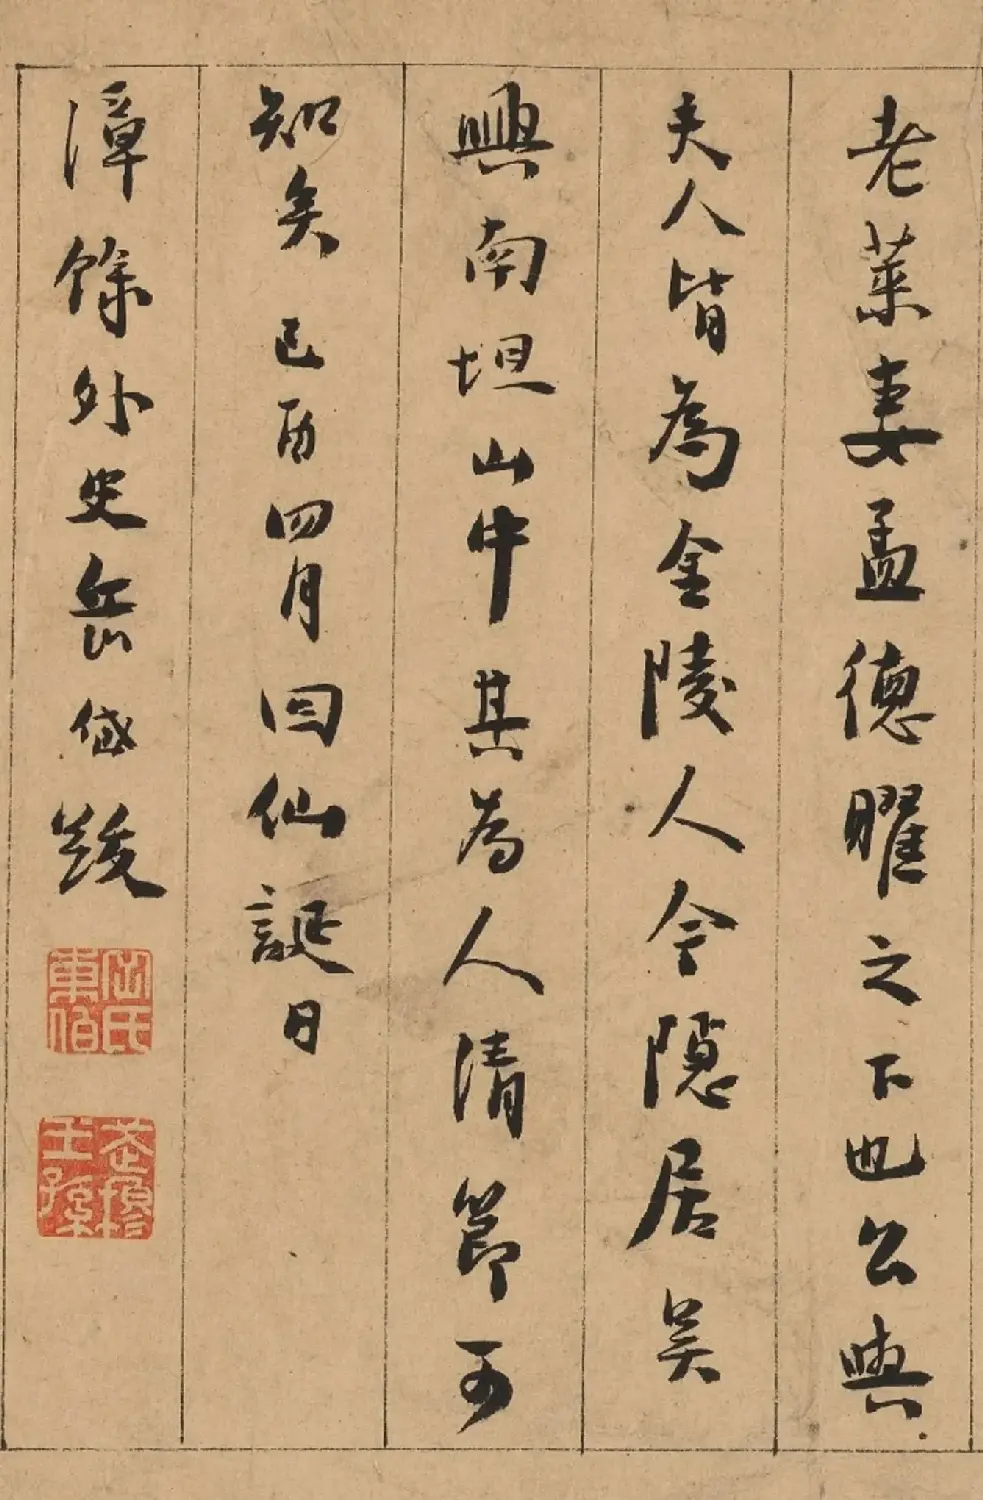 老萊妻孟德曜之下也公與
夫人皆為金陵人今隱居吴
興南坦山中其為人清節可
知矣己酉四月回仙誕日
漳餘外史岳岱跋
岳氏東伯